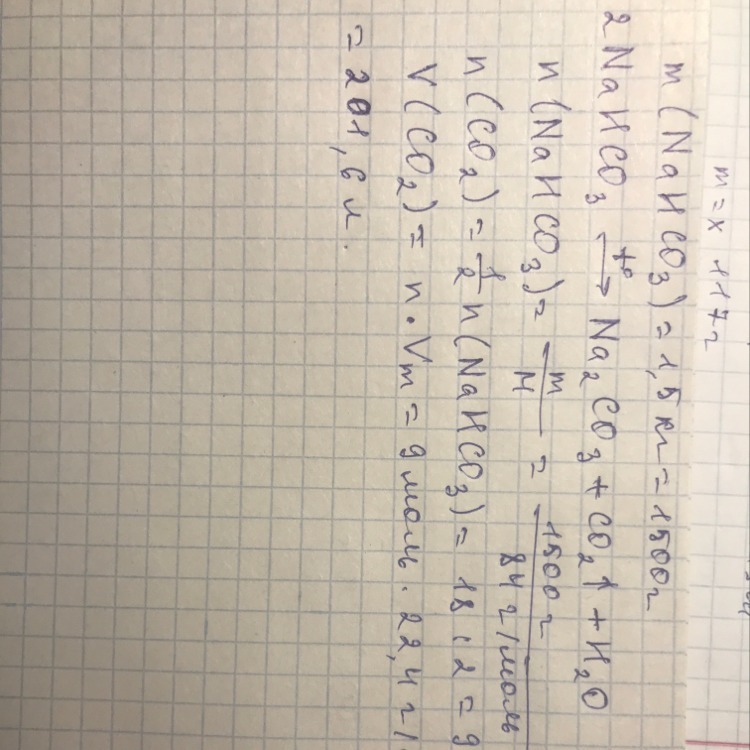 m = x 117г
m(NaHCO₃) = 1,5 кг = 1500г
2NaHCO₃ →(t°) Na₂CO₃ + CO₂↑ + H₂O
n(NaHCO₃) = m/M = 1500 г / 84 г/моль
n(CO₂) = 1/2 n(NaHCO₃) = 18 : 2 = 9
V(CO₂) = n · Vm = 9 моль · 22,4 г/
= 201,6 л.